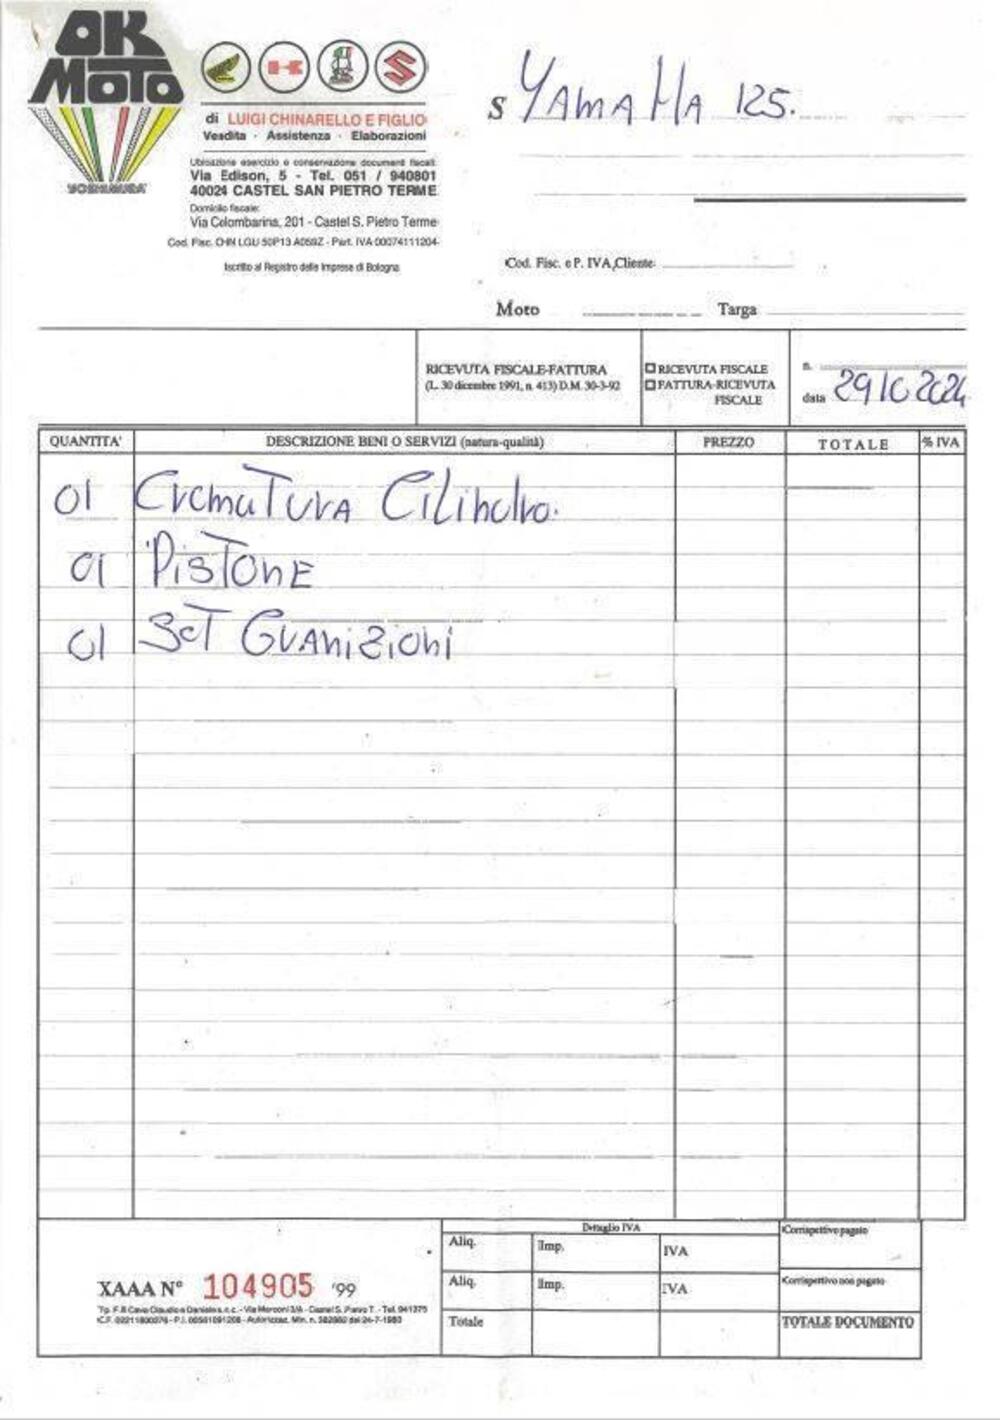 OK
MOTO
YOSHIMURA
di LUIGI CHINARELLO E FIGLIO
Vendita - Assistenza - Elaborazioni
Ubicazione esercizio e conservazione documenti fiscali:
Via Edison, 5 - Tel. 051 / 940801
40024 CASTEL SAN PIETRO TERME
Domicilio fiscale:
Via Colombarina, 201 - Castel S. Pietro Terme
Cod. Fisc. CHN LGU 50P13 A059Z - Part. IVA 00074111204
Iscritto al Registro delle Imprese di Bologna
S YAMAHA 125.
Cod. Fisc. e P. IVA Cliente
Moto Targa
RICEVUTA FISCALE-FATTURA
(L. 30 dicembre 1991, n. 413) D.M. 30-3-92
RICEVUTA FISCALE
FATTURA-RICEVUTA
FISCALE
n.
data 29 10 2024
QUANTITA' DESCRIZIONE BENI O SERVIZI (natura-qualità) PREZZO TOTALE % IVA
01 Cromatura Cilindro.
01 PISTONE
01 SET GUARNIZIONI
XAAA N° 104905 '99
Tip. F.lli Cava Claudio e Daniele s.n.c. - Via Marconi
Dettaglio IVA
Aliq. Imp. IVA
Aliq. Imp. IVA
Totale
Corrispettivo pagato
Corrispettivo non pagato
TOTALE DOCUMENTO